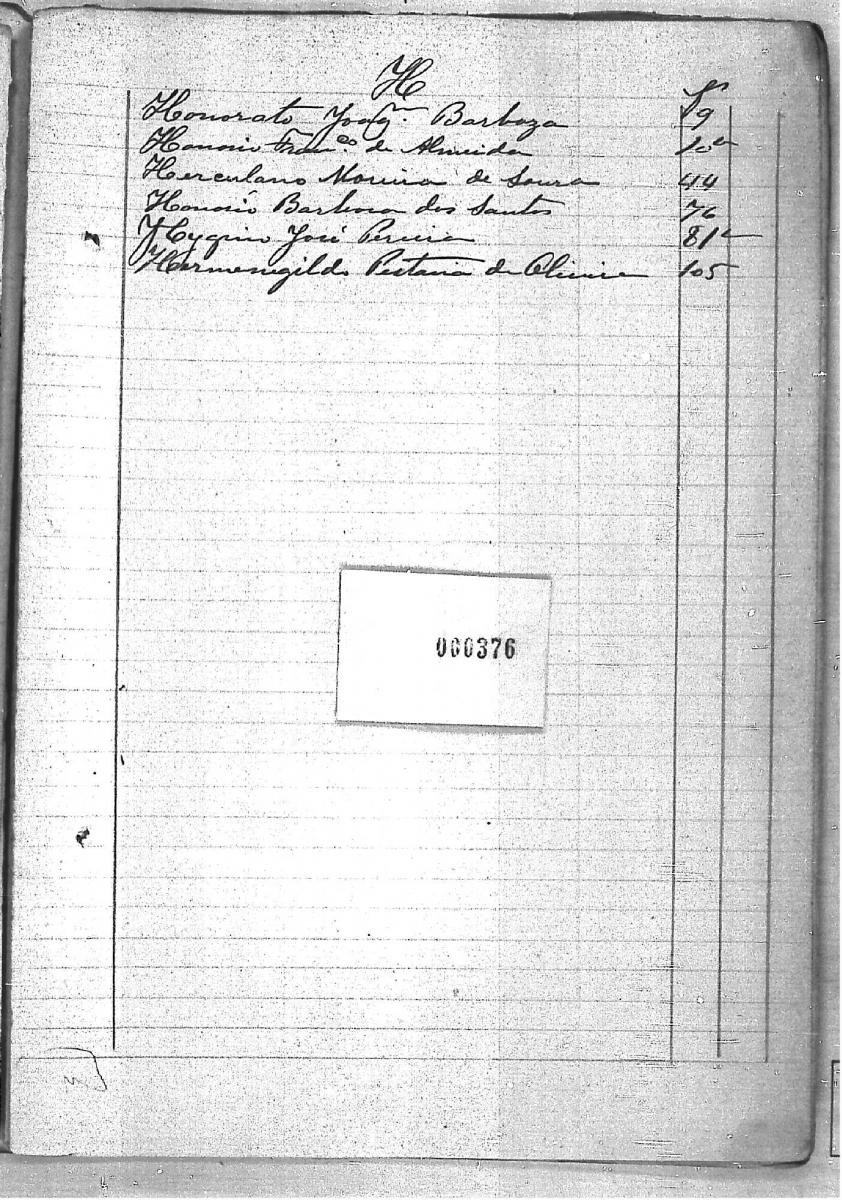 H
Honorato Joaqm. Barboza 19
Honorio Franco. de Almeida 20
Herculano Moreira de Souza 44
Honorio Barbosa dos Santos 76
Hygino José Pereira 81
Hermenegildo Pestana de Oliveira 105
000376